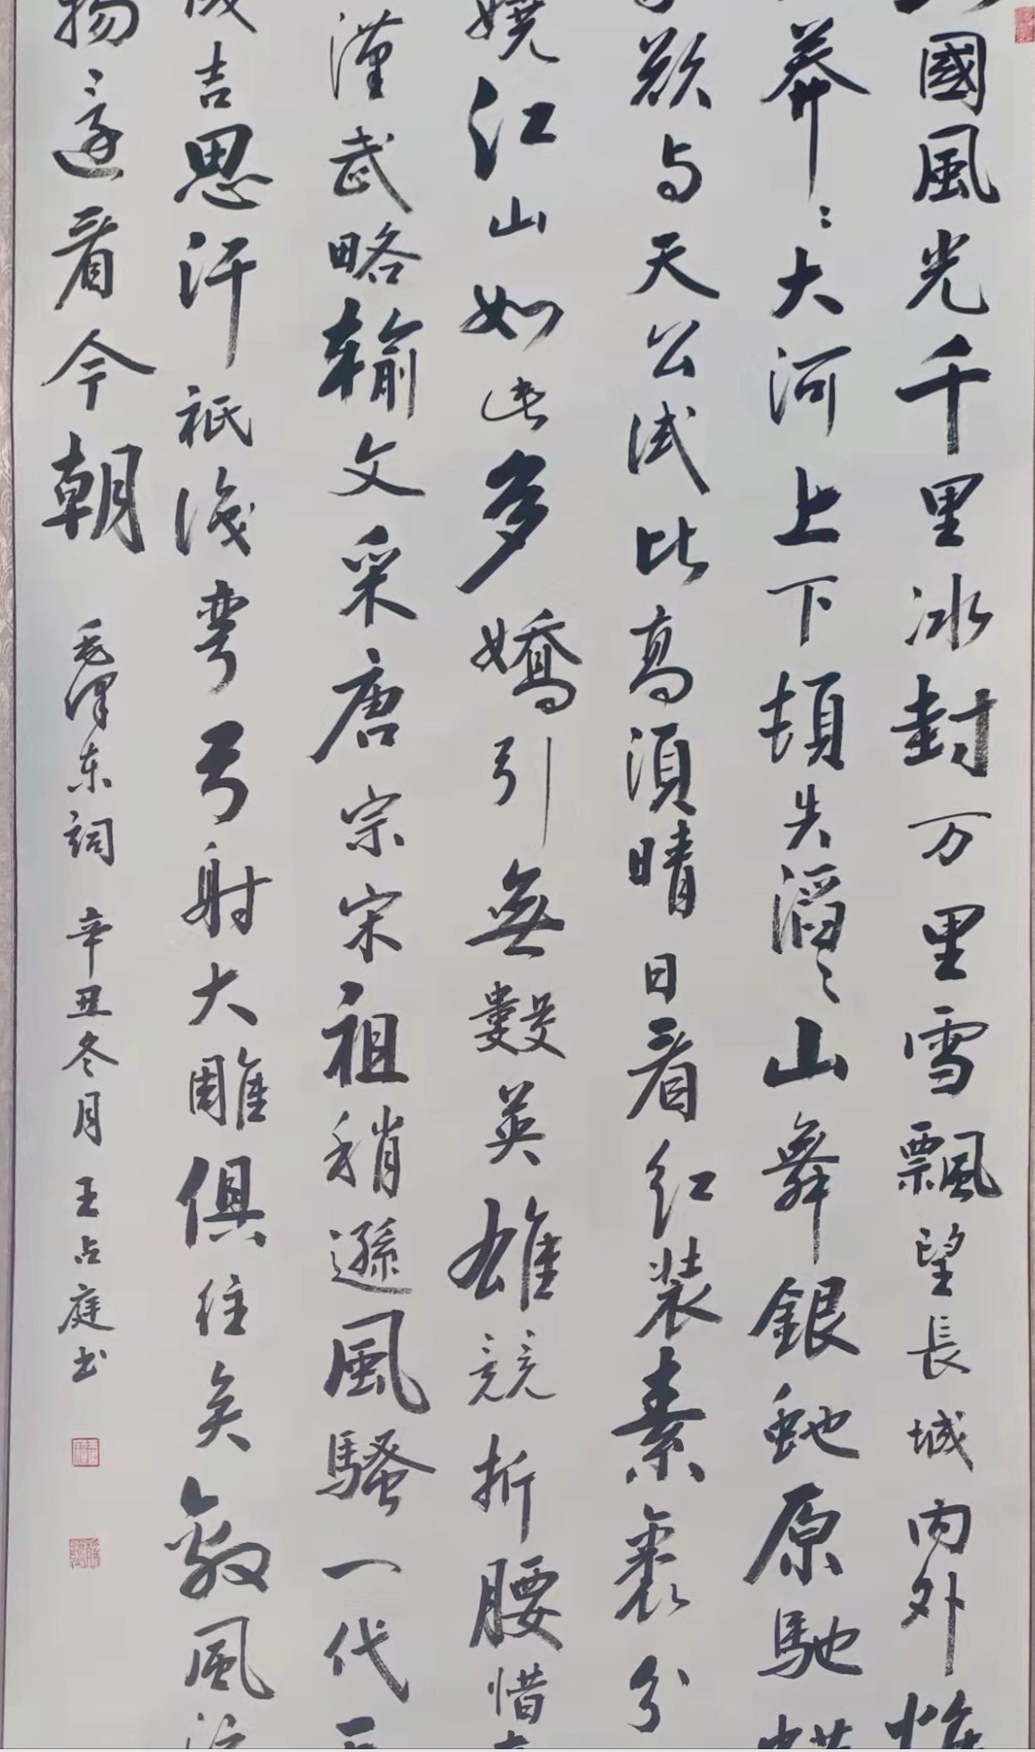 國風光千里冰封万里雪飄望長城内外惟
莽〻大河上下頓失滔〻山舞銀蛇原馳蜡
欲与天公试比高須晴日看红装素裹分
嬈江山如此多嬌引無數英雄競折腰惜
漢武略輸文采唐宗宋祖稍遜風騷一代天
成吉思汗祇識弯弓射大雕俱往矣數風流
物還看今朝
毛澤东詞 辛丑冬月 王占庭书